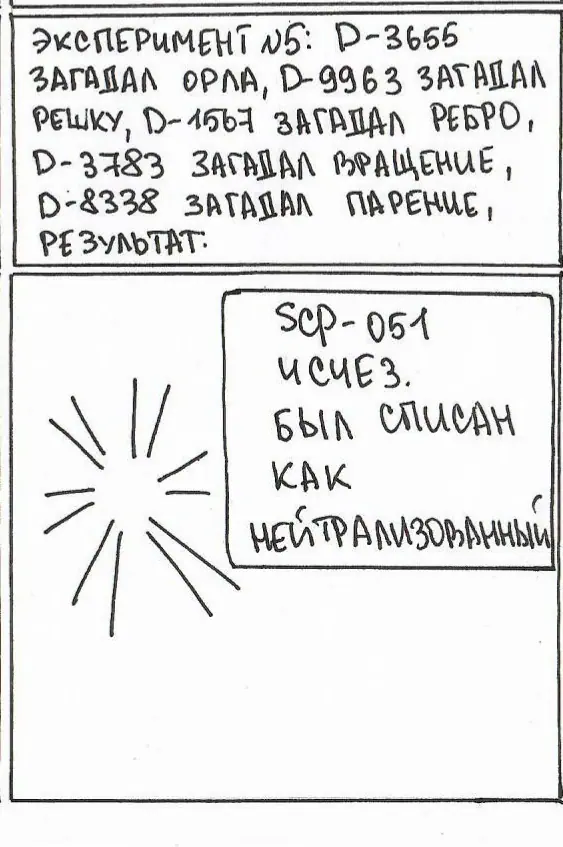 ЭКСПЕРИМЕНТ №5: D-3655
ЗАГАДАЛ ОРЛА, D-9963 ЗАГАДАЛ
РЕШКУ, D-1567 ЗАГАДАЛ РЕБРО,
D-3783 ЗАГАДАЛ ВРАЩЕНИЕ,
D-8338 ЗАГАДАЛ ПАРЕНИЕ,
РЕЗУЛЬТАТ:
SCP-051
ИСЧЕЗ.
БЫЛ СПИСАН
КАК
НЕЙТРАЛИЗОВАННЫЙ